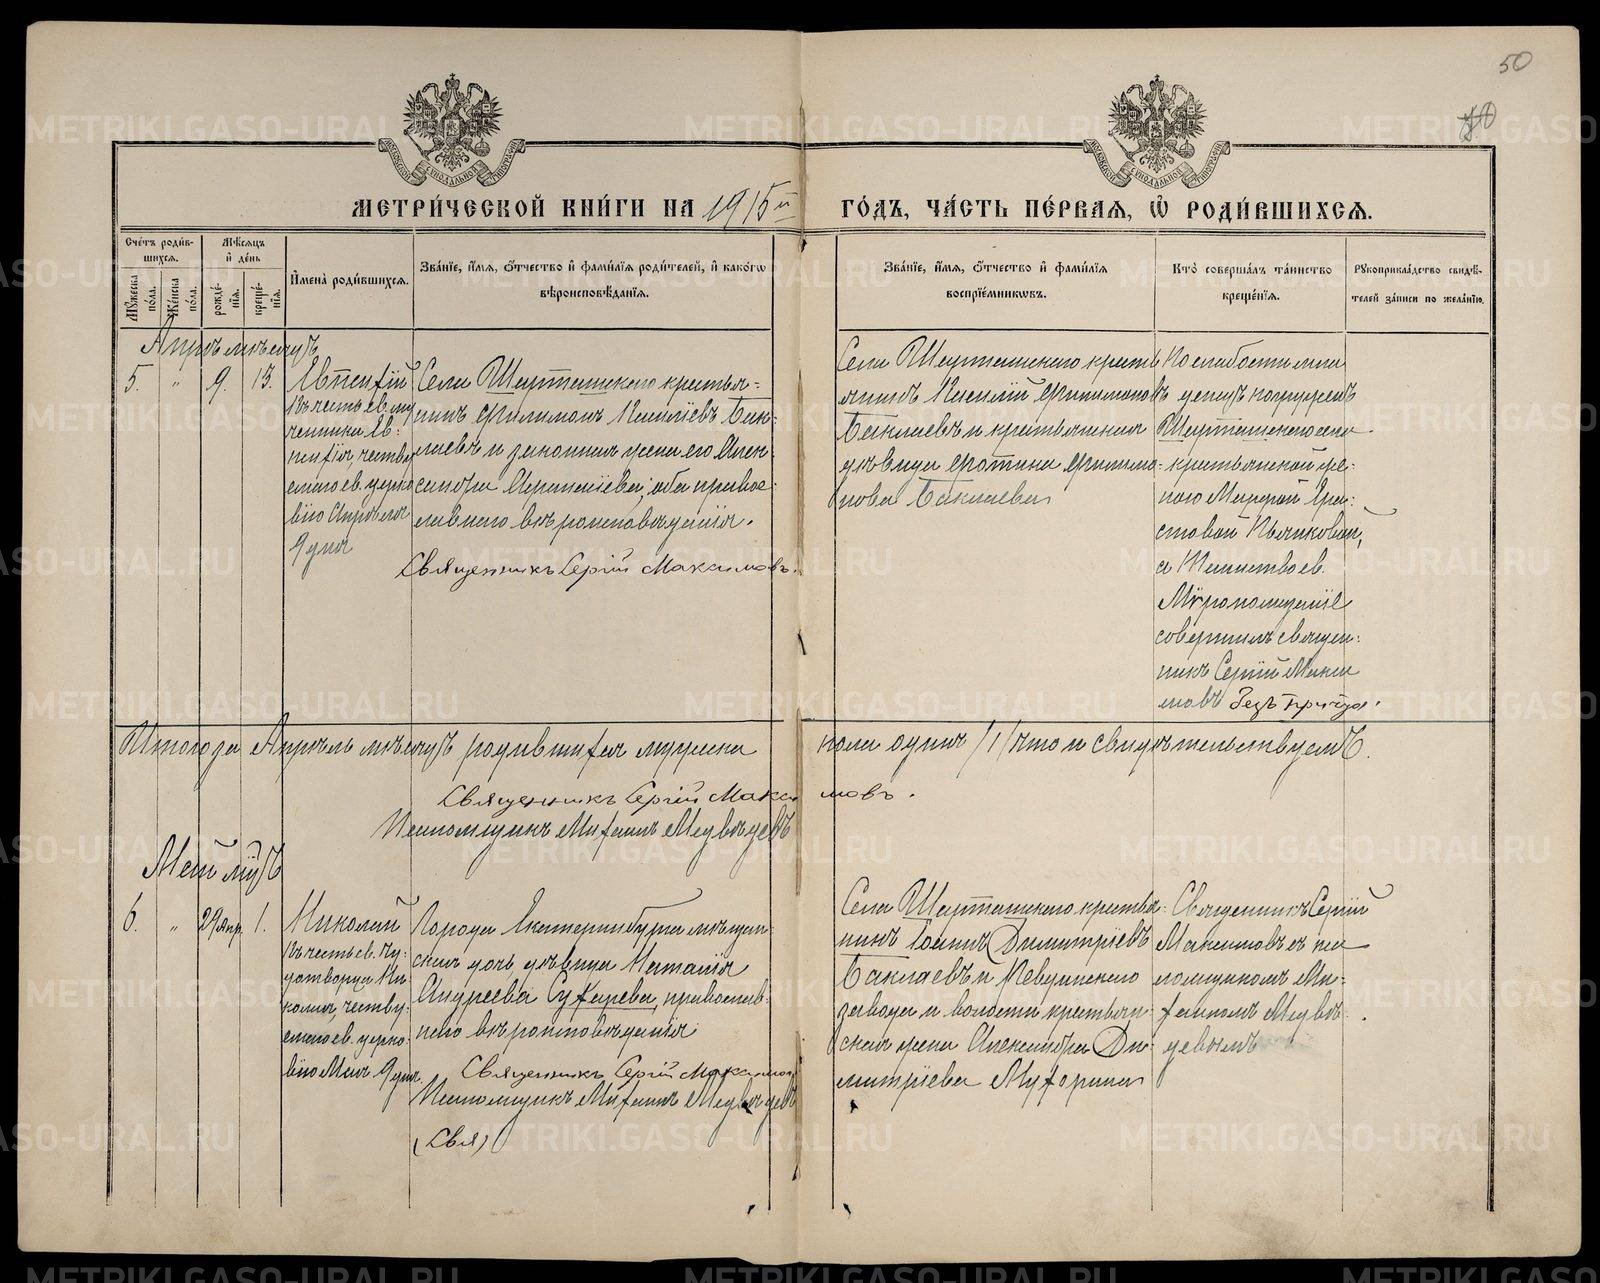 50
МЕТРИ́ЧЕСКОЙ КНИ́ГИ НА 1915й ГО́ДЪ, ЧА́СТЬ ПЕ́РВАЯ, Ѿ РОДИ́ВШИХСЯ.
Сче́тъ роди́вшихся.
Мѣ́сяцъ и де́нь
Му́жеска по́ла.
Же́нска по́ла.
рожде́нія.
креще́нія.
Имена̀ роди́вшихся.
Зва́ніе, и́мя, о́тчество и фами́лія роди́телей, и како́гѡ
вѣроисповѣ́данія.
Зва́ніе, и́мя, о́тчество и фами́лія
воспріе́мникѡвъ.
Кто̀ соверша́лъ та́инство
креще́нія.
Рукоприкла́дство свидѣ́-
телей за́писи по жела́нію.
Апрѣль мѣсяцъ
5. " 9. 13.
Евпсихій
Въ честь св. му
ченика Ев-
психія, чтвуе
емаго св. церко
вію Апрѣля
9 дня
Села Шарташскаго крестья-
нинъ Филимонъ Василіевъ Бак-
лаевъ и законная жена его Алек-
сандра Аѳанасіева, оба правос-
лавнаго вѣроисповѣданія.
Священникъ Сергій Максимовъ.
Села Шарташскаго кресть
янинъ Василій Филимоновъ
Баклаевъ и крестьянская
дѣвица Фотина Филимо-
нова Баклаева
По слабости мла
денецъ погруженъ
Шарташскаго села
крестьянской же-
ною Марфой
стовой Пьянковой,
а Таинство св.
Мѵропомазаніе
совершилъ священ-
никъ Сергій Макси
мовъ безъ причта.
Итого за Апрѣль мѣсяцъ родившихся мужеска пола одинъ /1/ что и свидѣтельствуемъ.
Священникъ Сергій Максимовъ.
Псаломщикъ Михаилъ Медвѣдевъ
Май мцъ
6. " 29 апр. 1.
Николай
Въ честь св. Чу-
дотворца Ни-
колая, чтву-
емаго св. церко-
вію Мая 9 дня
Города Екатеринбурга мѣщан-
ская дочь дѣвица Наталія
Андреева Сухарева, православ-
наго вѣроисповѣданія
Священникъ Сергій Максимовъ
Псаломщикъ Михаилъ Медвѣдевъ
(Свя)
Села Шарташскаго крестья-
нинъ Іоаннъ Димитріевъ
Баклаевъ и Невьянскаго
завода и волости крестьян-
ская жена Александра Ди-
митріева Мухорина
Священникъ Сергій
Максимовъ съ пса
ломщикомъ Ми-
хаиломъ Медвѣ-
девымъ